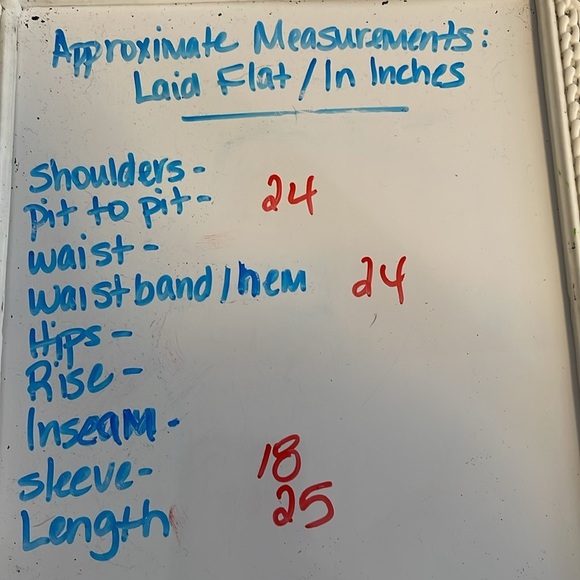 Approximate Measurements:
Laid Flat / In Inches
Shoulders-
pit to pit- 24
waist-
waistband/hem 24
Hips-
Rise-
Inseam-
sleeve- 18
Length 25